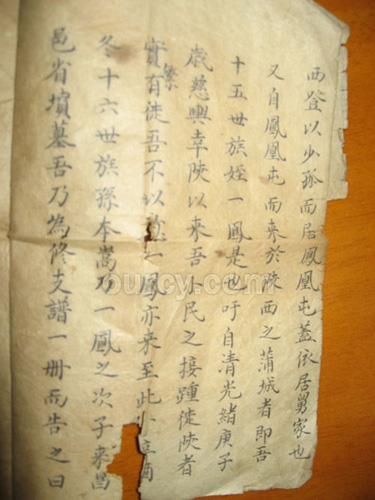 西登以少孤而居鳳凰屯蓋依居舅家也
又自鳳凰屯而来於陝西之蒲城者即吾
十五世族姪一鳳是也吁自清光緒庚子
歲慈輿幸陝以來吾小民之接踵徙陝者
實繁有徒吾不以一鳳亦来至此
冬十六世族孫本嵩乃一鳳之次子来昌
邑省墳墓吾乃為修支譜一冊而告之曰
oucy.com